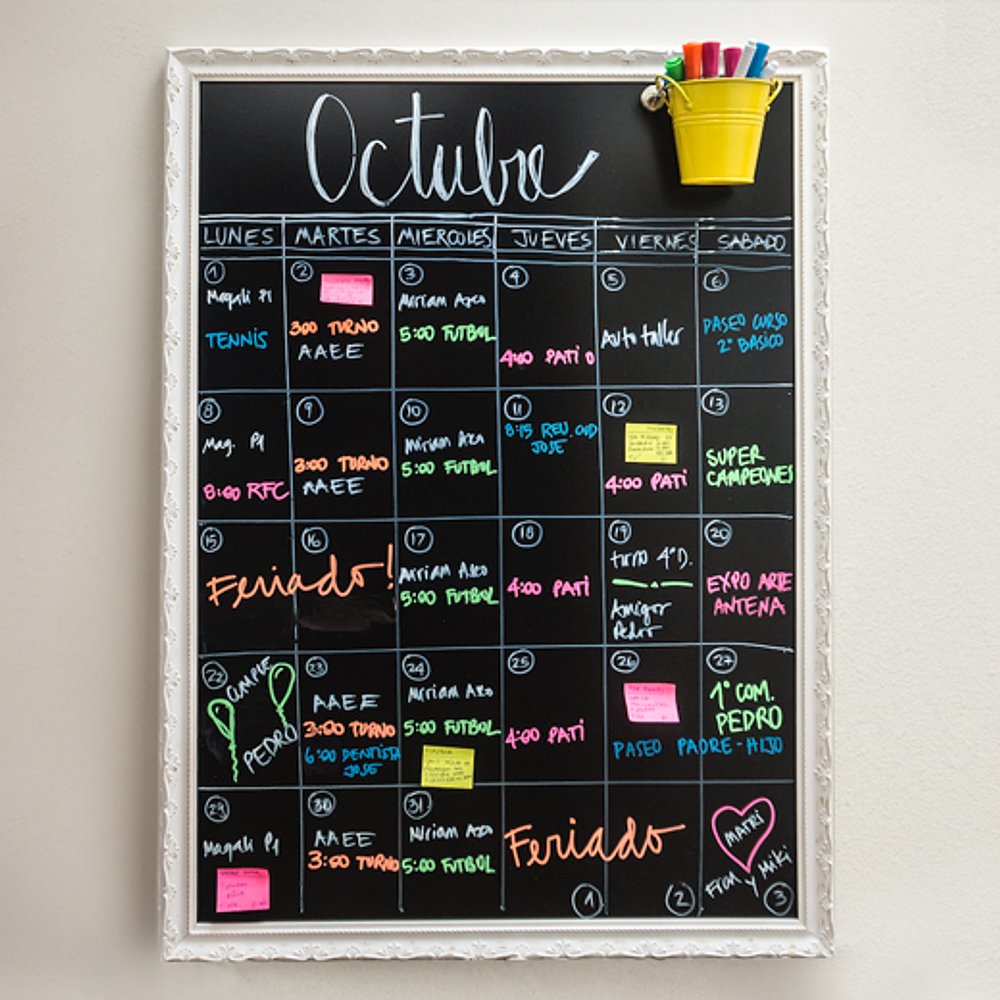 Octubre
LUNES MARTES MIERCOLES JUEVES VIERNES SABADO
1 2 3 4 5 6
Magali P1
TENNIS
3:00 TURNO
AAEE
Miriam Aseo
5:00 FUTBOL
4:00 PATI
Auto taller
PASEO CURSO
2° BASICO
8 9 10 11 12 13
Mag. P1
8:00 RFC
3:00 TURNO
AAEE
Miriam Aseo
5:00 FUTBOL
8:15 REU.
JOSE
4:00 PATI
SUPER
CAMPEONES
15 16 17 18 19 20
Feriado!
Miriam Aseo
5:00 FUTBOL
4:00 PATI
turno 4°D.
Amigos
Pedro
EXPO ARTE
ANTENA
22 23 24 25 26 27
CUMPLE
PEDRO
AAEE
3:00 TURNO
6:00 DENTISTA
JOSE
Miriam Aseo
5:00 FUTBOL
4:00 PATI
1° COM.
PEDRO
PASEO PADRE-HIJO
29 30 31
Magali P1
AAEE
3:00 TURNO
Miriam Aseo
5:00 FUTBOL
Feriado
MATRI
Fran y Miki
1 2 3